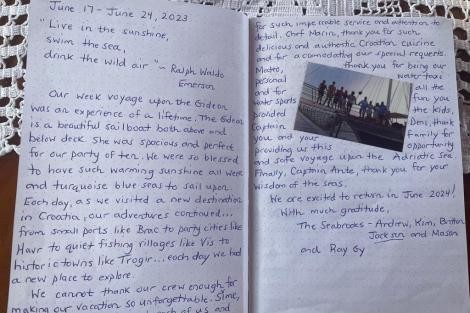 June 17 - June 24, 2023
"Live in the sunshine,
swim the sea,
drink the wild air" - Ralph Waldo
Emerson
Our week voyage upon the Gideon
was an experience of a lifetime. The Gideon
is a beautiful sailboat both above and
below deck. She was spacious and perfect
for our party of ten. We were so blessed
to have such warming sunshine all week
and turquoise blue seas to sail upon.
Each day, as we visited a new destination
in Croatia, our adventures continued...
from small ports like Brac to party cities like
Havr to quiet fishing villages like Vis to
historic towns like Trogir... each day we had
a new place to explore.
We cannot thank our crew enough for
making our vacation so unforgettable. Sime,
each of us and
for such impeccable service and attention to
detail. Chef Marin, thank you for such
delicious and authentic Croatian cuisine
and for accomodating our special requests.
Mateo, thank you for being our
personal water taxi
and for all the
water sports fun you
provided the kids.
Captain Deni, thank
you and your family for
providing us this opportunity
and safe voyage upon the Adriatic Sea.
Finally, Captain, Ante, thank you for your
wisdom of the seas.
We are excited to return in June 2024!
With much gratitude,
The Seabrooks - Andrew, Kim, Britton
Jackson and Mason
and Ray Gy